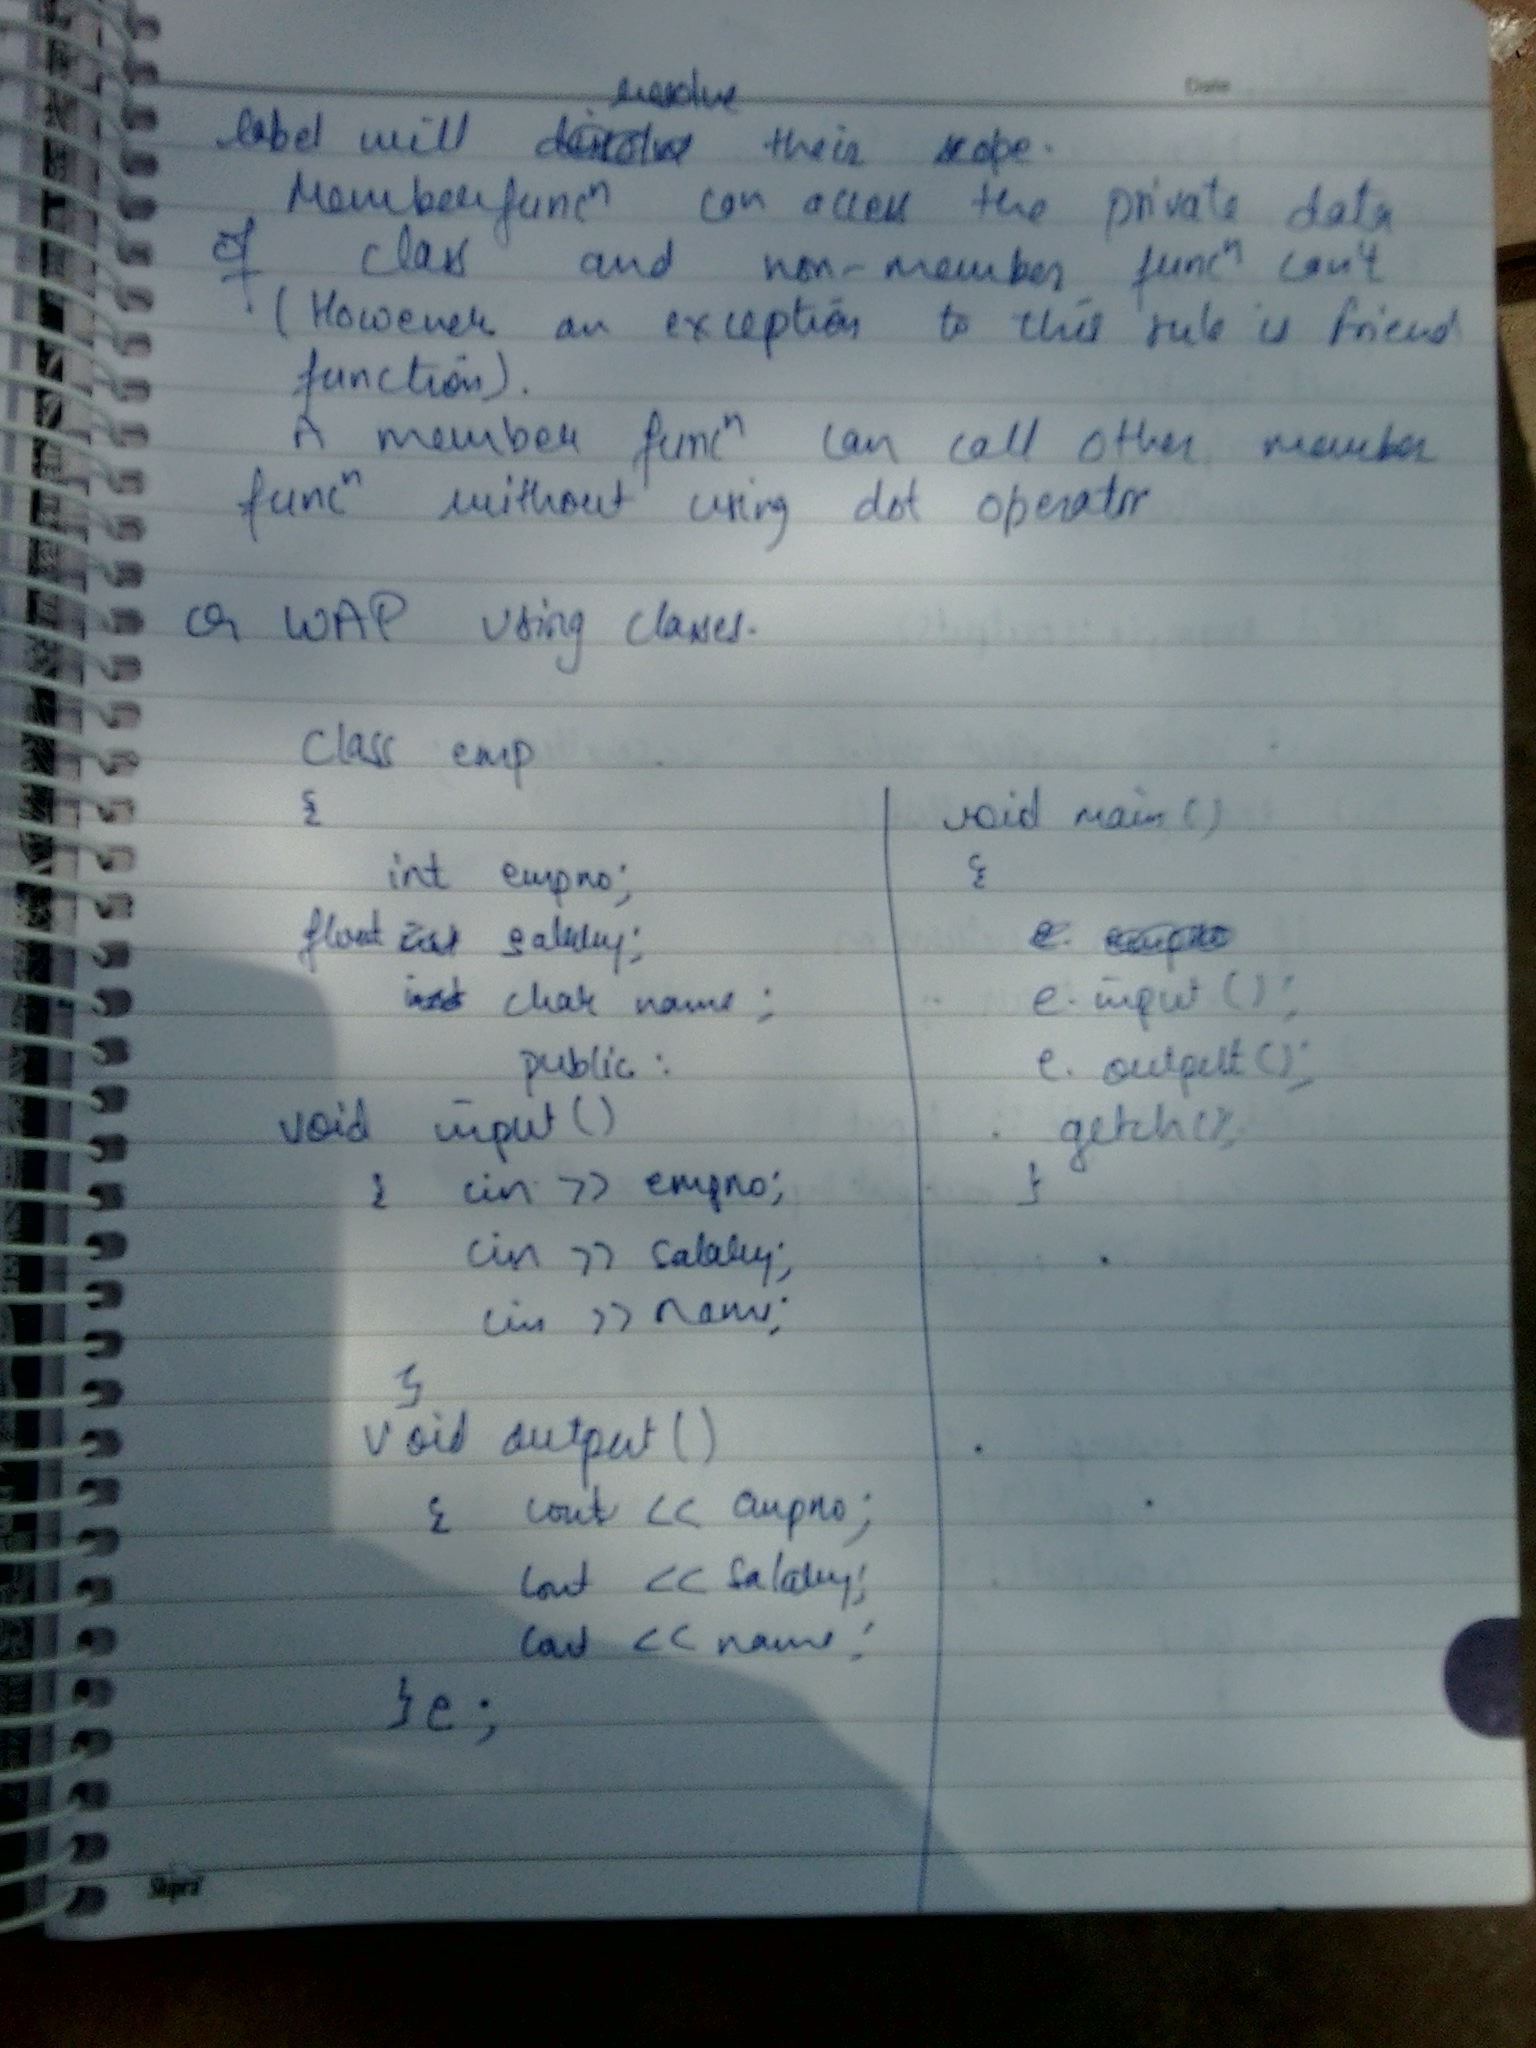 Date
resolve
label will their scope.
Member funcⁿ can access the private data
of class and non-member funcⁿ can't
(However an exception to this rule is friend
function).
A member funcⁿ can call other member
funcⁿ without using dot operator
Q WAP using classes.
Class emp
{
int empno;
float salary;
char name;
public:
void input()
{ cin >> empno;
cin >> salary;
cin >> name;
}
void output()
{ cout << empno;
cout << salary;
cout << name;
}e;
void main()
{
e.input();
e.output();
getch();
}
Shipra